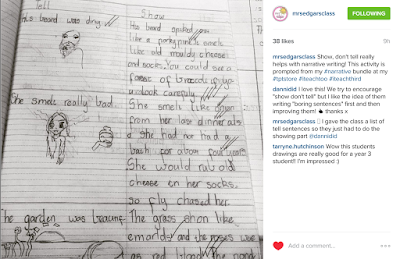 Tell
Show
His beard was dirty.
His beard spiked
like a porkypine & smels
like old mouldy cheese
and socks. You could see
peces of broccoli if you
look carefuly.
She smells really bad.
She smels like
from her last dinner and
she had not had a
bath for about four years
She would rub old
cheese on her socks.
So fly chased her.
The garden was beautiful
The grass shon like
emoralds and the roses were
as red blood the
mrsedgarsclass
FOLLOWING
38 likes
9h
mrsedgarsclass Show, don't tell really
helps with narrative writing! This activity is
prompted from my #narrative bundle at my
#tptstore #teachtoo #teachthird
dannidid I love this! We try to encourage
"show don't tell" but I like the idea of them
writing "boring sentences" first and then
improving them! 👍 thanks x
mrsedgarsclass I gave the class a list of
tell sentences so they just had to do the
showing part. @dannidid
tarryne.hutchinson Wow this students
drawings are really good for a year 3
student!! I'm impressed :)
Add a comment...